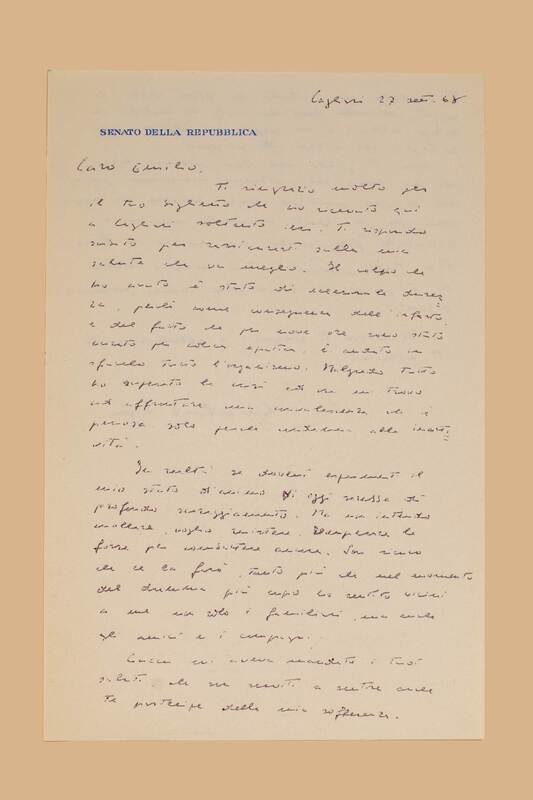 Cagliari 27 sett. 68
SENATO DELLA REPUBBLICA
Caro Emilio,
Ti ringrazio molto per
il tuo biglietto che ho ricevuto qui
a Cagliari soltanto ieri. Ti rispondo
subito per rassicurarti sulla mia
salute che va meglio. Il colpo che
ho avuto è stato di eccezionale durez=
za, perché come conseguenza dell'infarto
e del fatto che per nove ore sono stato
curato per colica epatica, è andato in
sfacelo tutto l'organismo. Malgrado tutto
ho superato la crisi ed ora mi trovo
ad affrontare una convalescenza che è
penosa solo perché condanna alla inatti=
vità.
In realtà se dovessi esprimerti il
mio stato d'animo di oggi sarebbe di
profondo scoraggiamento. Ma non intendo
mollare, voglio resistere, recuperare le
forze per combattere ancora. Son sicuro
che ce la farò, tanto più che nel momento
del dramma più cupo ho sentito vicini
a me non solo i familiari, ma anche
gli amici e i compagni.
mi aveva mandato i tuoi
saluti che a sentire anche
te partecipe della mia sofferenza.